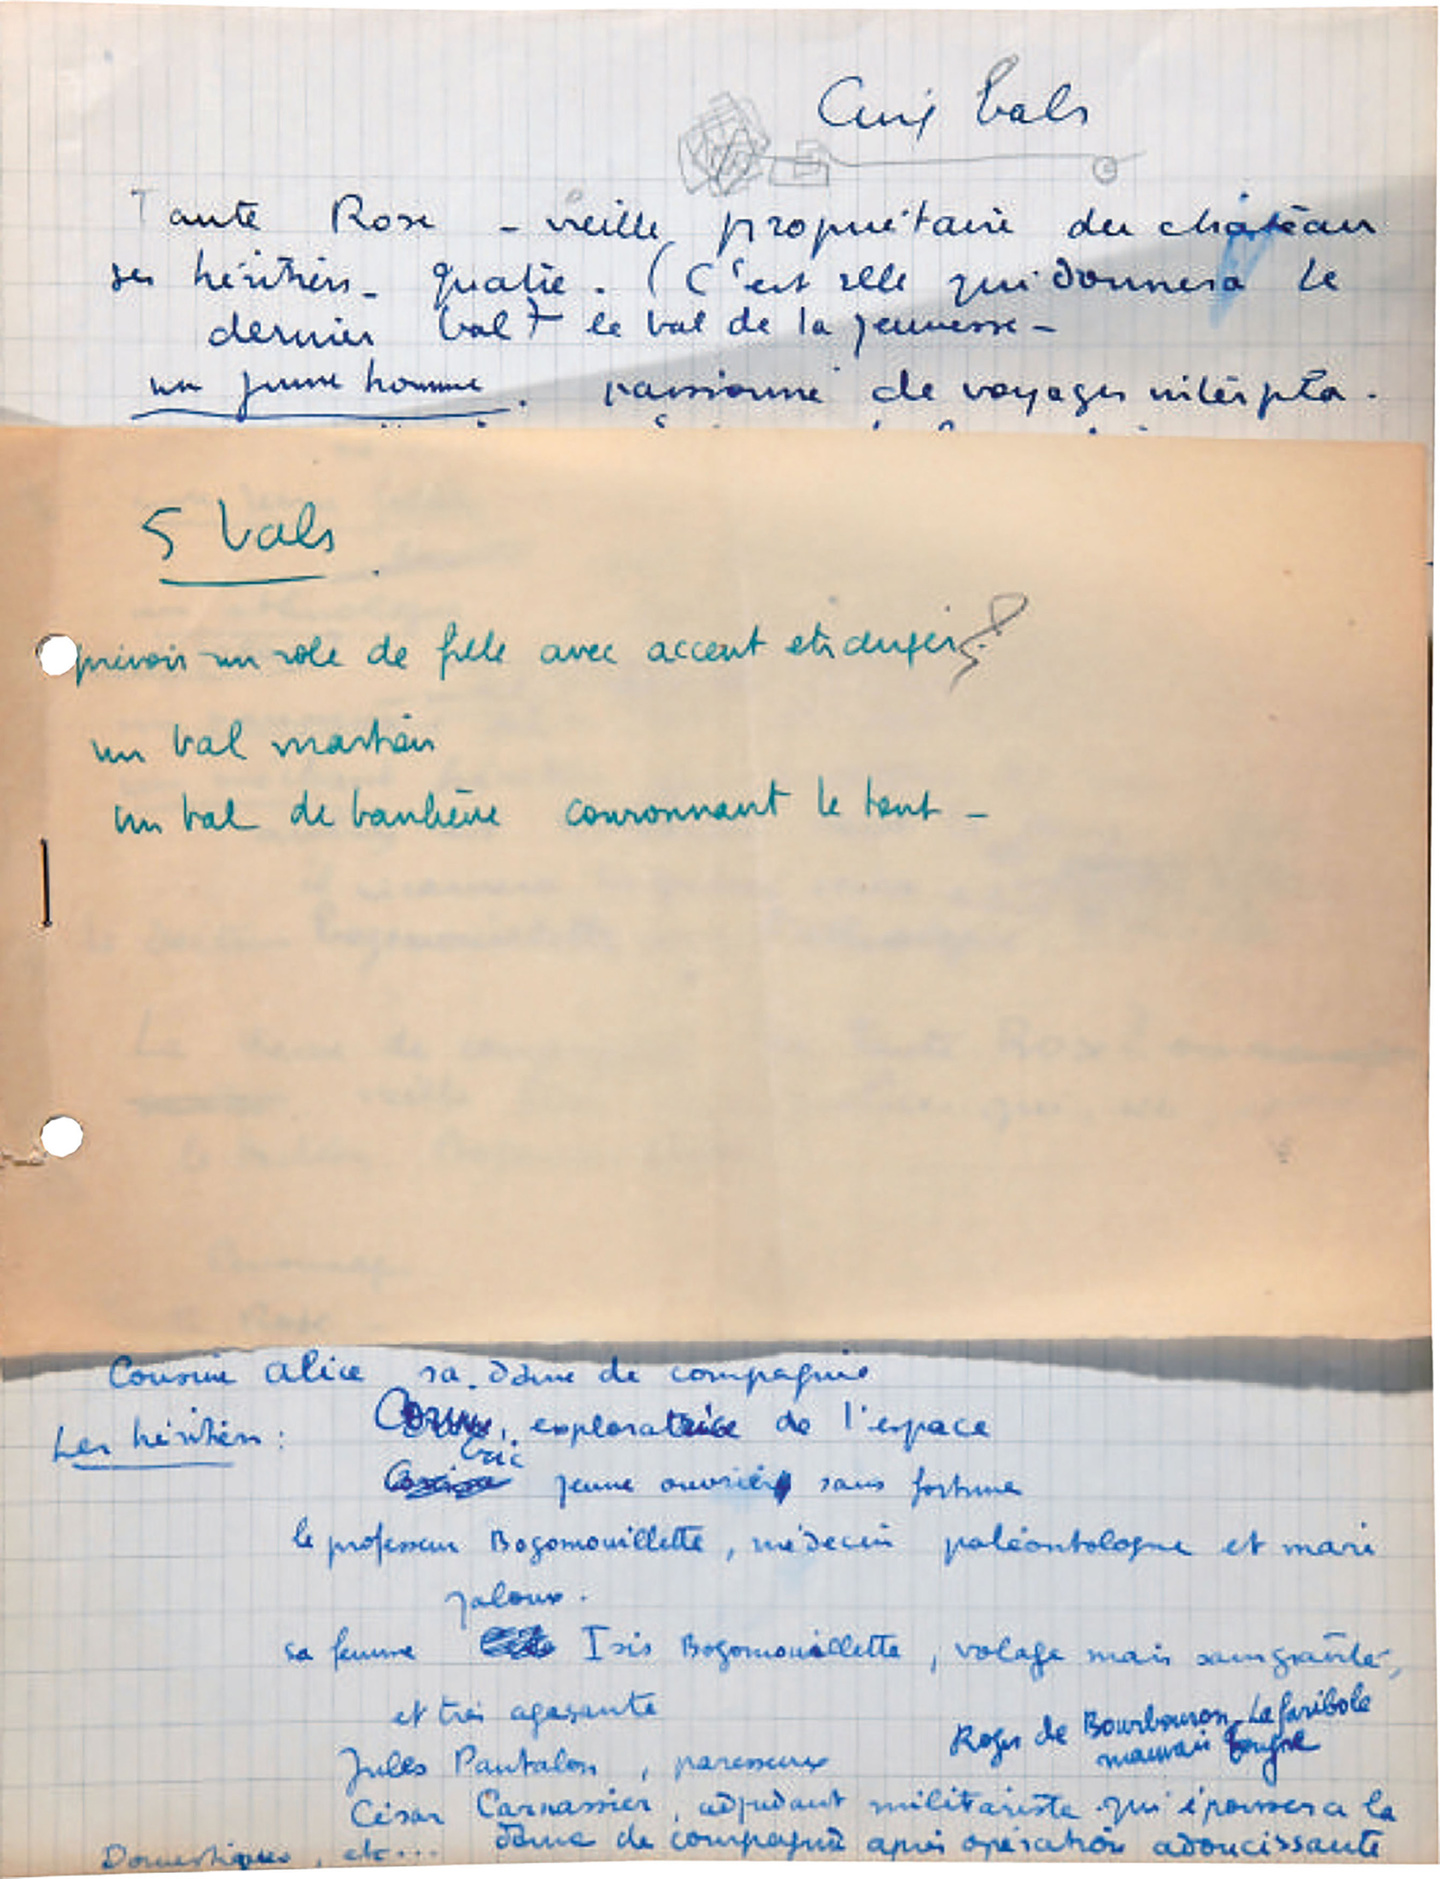 Cinq bals
Tante Rose - vieille, propriétaire du château
ses héritiers - quatre. (C'est elle qui donnera le
dernier bal) le bal de la jeunesse -
un jeune homme. passionné de voyages interpla.
5 bals.
prévoir un role de fille avec accent etranger?
un bal martien
un bal de banlieue couronnant le tout -
Cousine Alice sa dame de compagnie
Les héritiers : exploratrice de l'espace
Eric
jeune ouvrier sans fortune
le professeur Bogomouillette, médecin paléontologue et mari
jaloux.
sa femme Isis Bogomouillette, volage mais sans gravité,
et très agaçante
Roger de Bourbouron-Lafaribole
mauvais bougre
Jules Pantalon, paresseux
César Carnassier, adjudant militariste qui épousera la
dame de compagnie après opération adoucissante
Domestiques, etc...